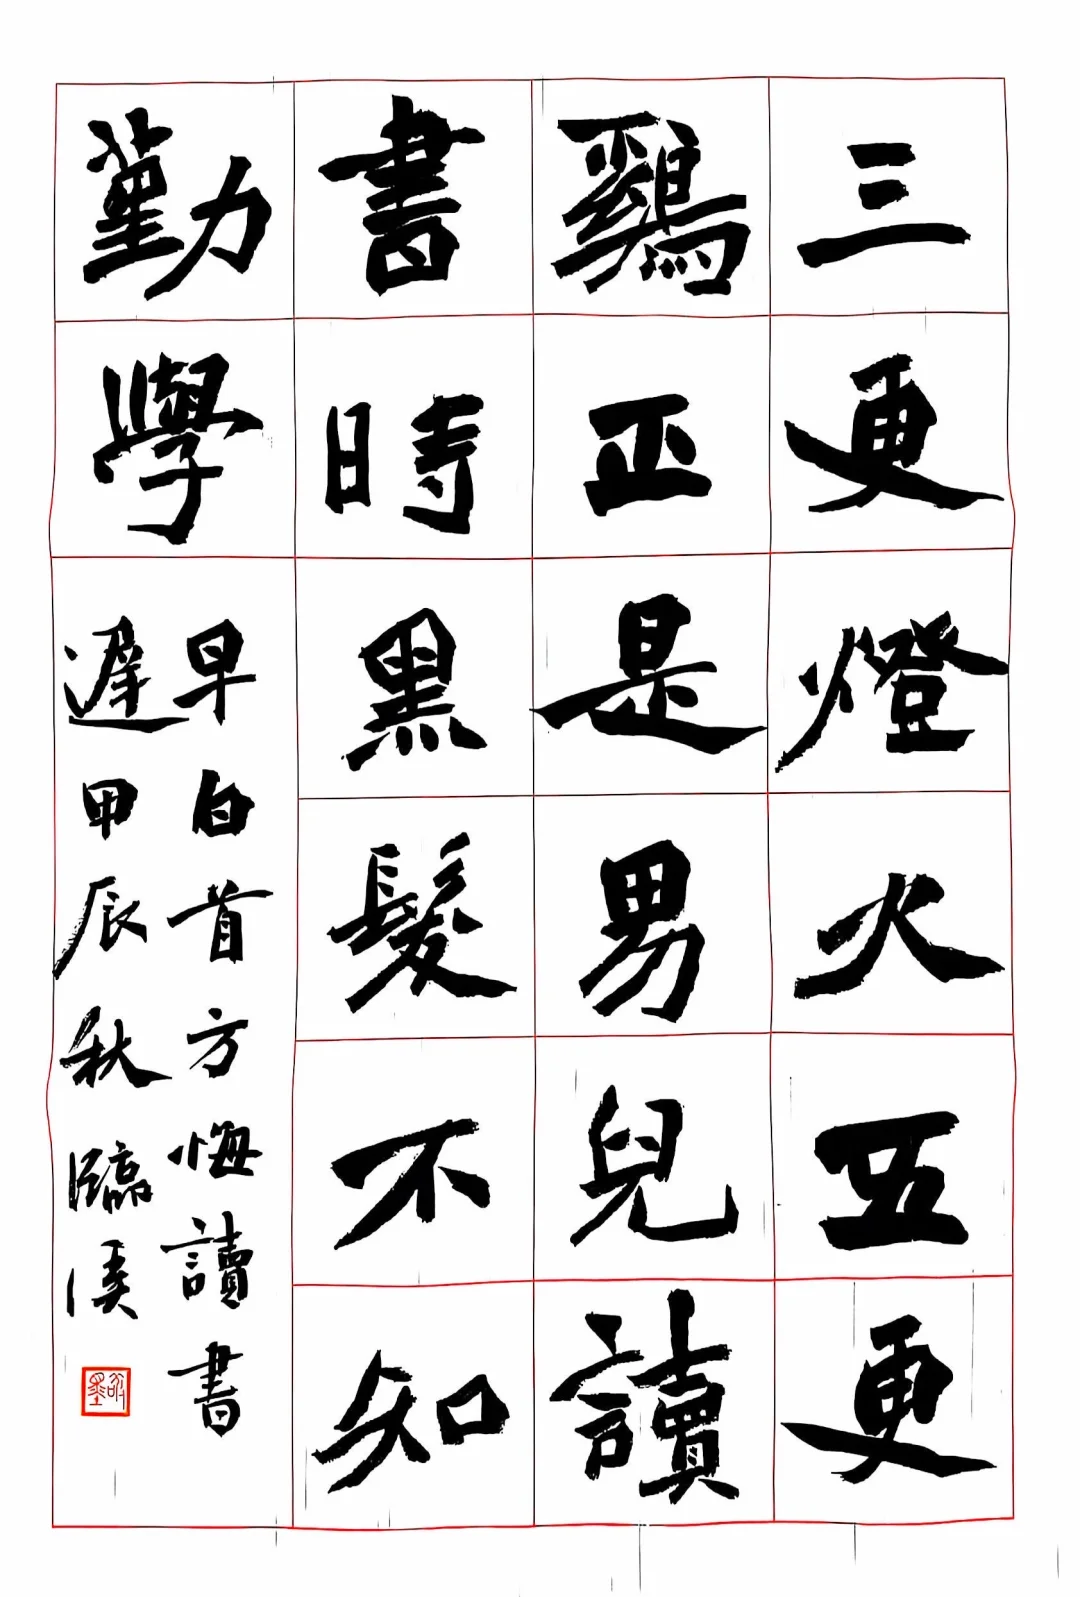 三更燈火五更
鷄正是男兒讀
書時黑髮不知
勤學
早白首方悔讀書
遲甲辰秋臨